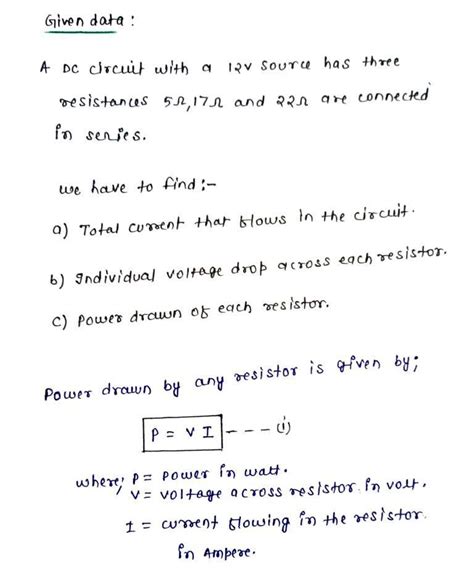 Given data :
A DC circuit with a 12V source has three
resistances 5Ω, 17Ω and 22Ω are connected
in series.
we have to find :-
a) Total current that flows in the circuit.
b) Individual voltage drop across each resistor.
c) Power drawn of each resistor.
Power drawn by any resistor is given by;
P = V I - - - (i)
where; P = Power in watt.
V = voltage across resistor in volt.
I = current flowing in the resistor
in Ampere.